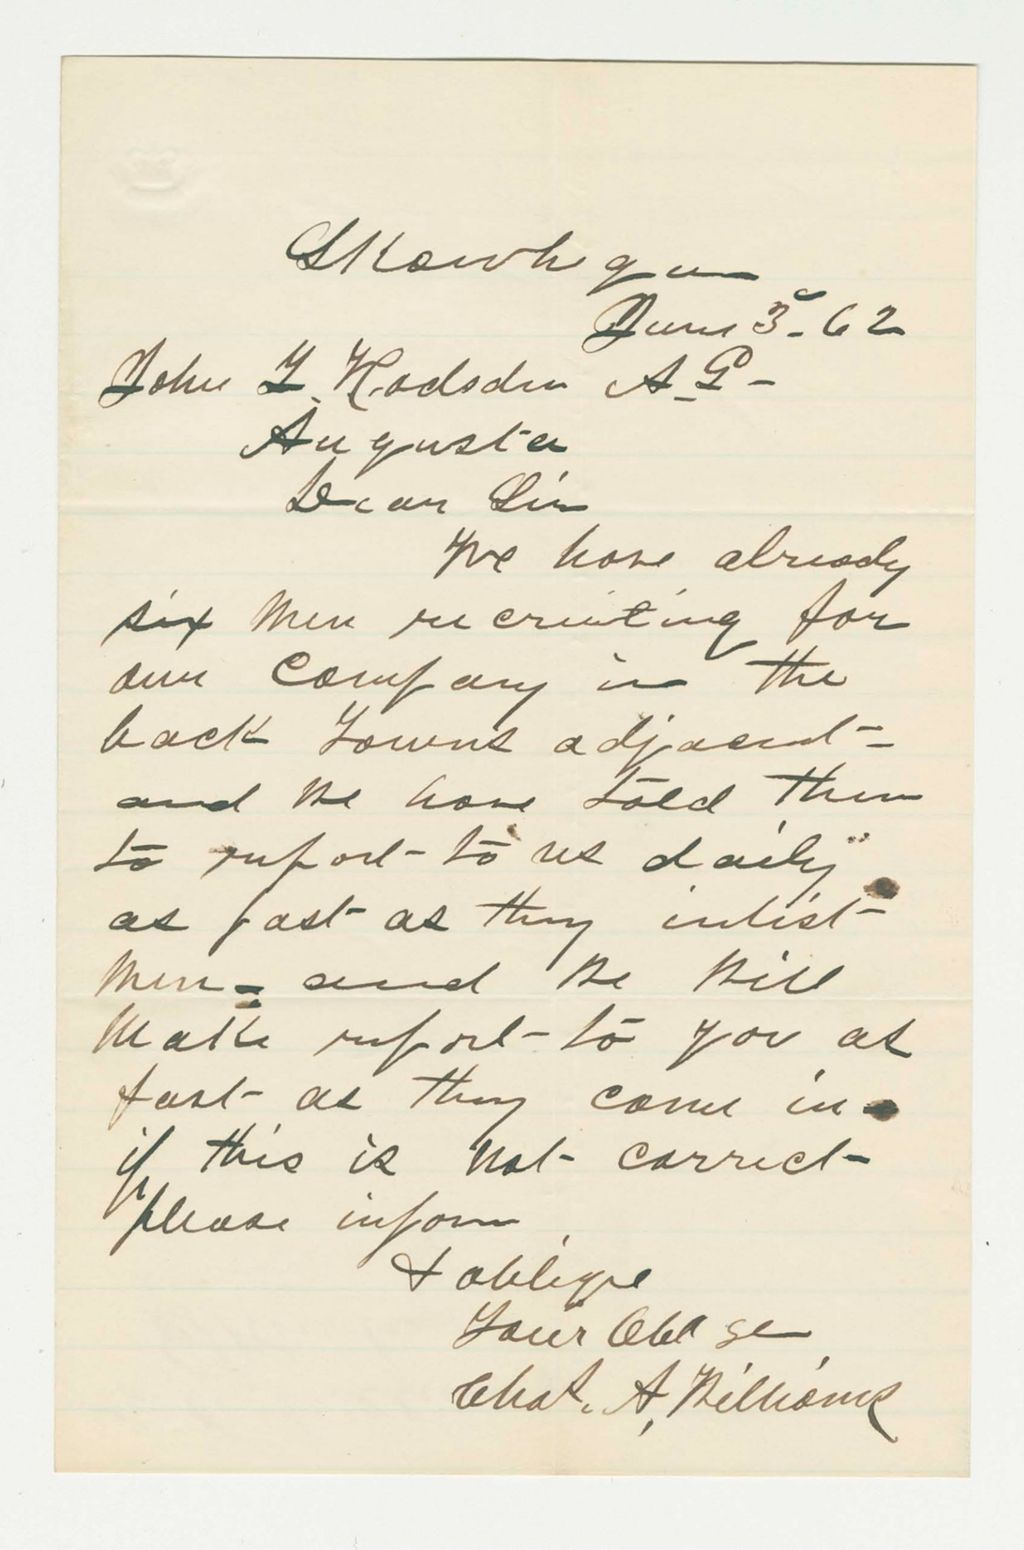 Skowhegan
June 3d- 62
John L. Hodsdon A.G-
Augusta
Dear Sir
We have already
six Men recruiting for
our Company in the
back Towns adjacent-
and We have told them
to report to us daily
as fast as they inlist
Men- and We Will
Make report to you as
fast as they come in-
if this is Not correct
please inform
& oblige
Your Obt Se
Chas. A. Williams